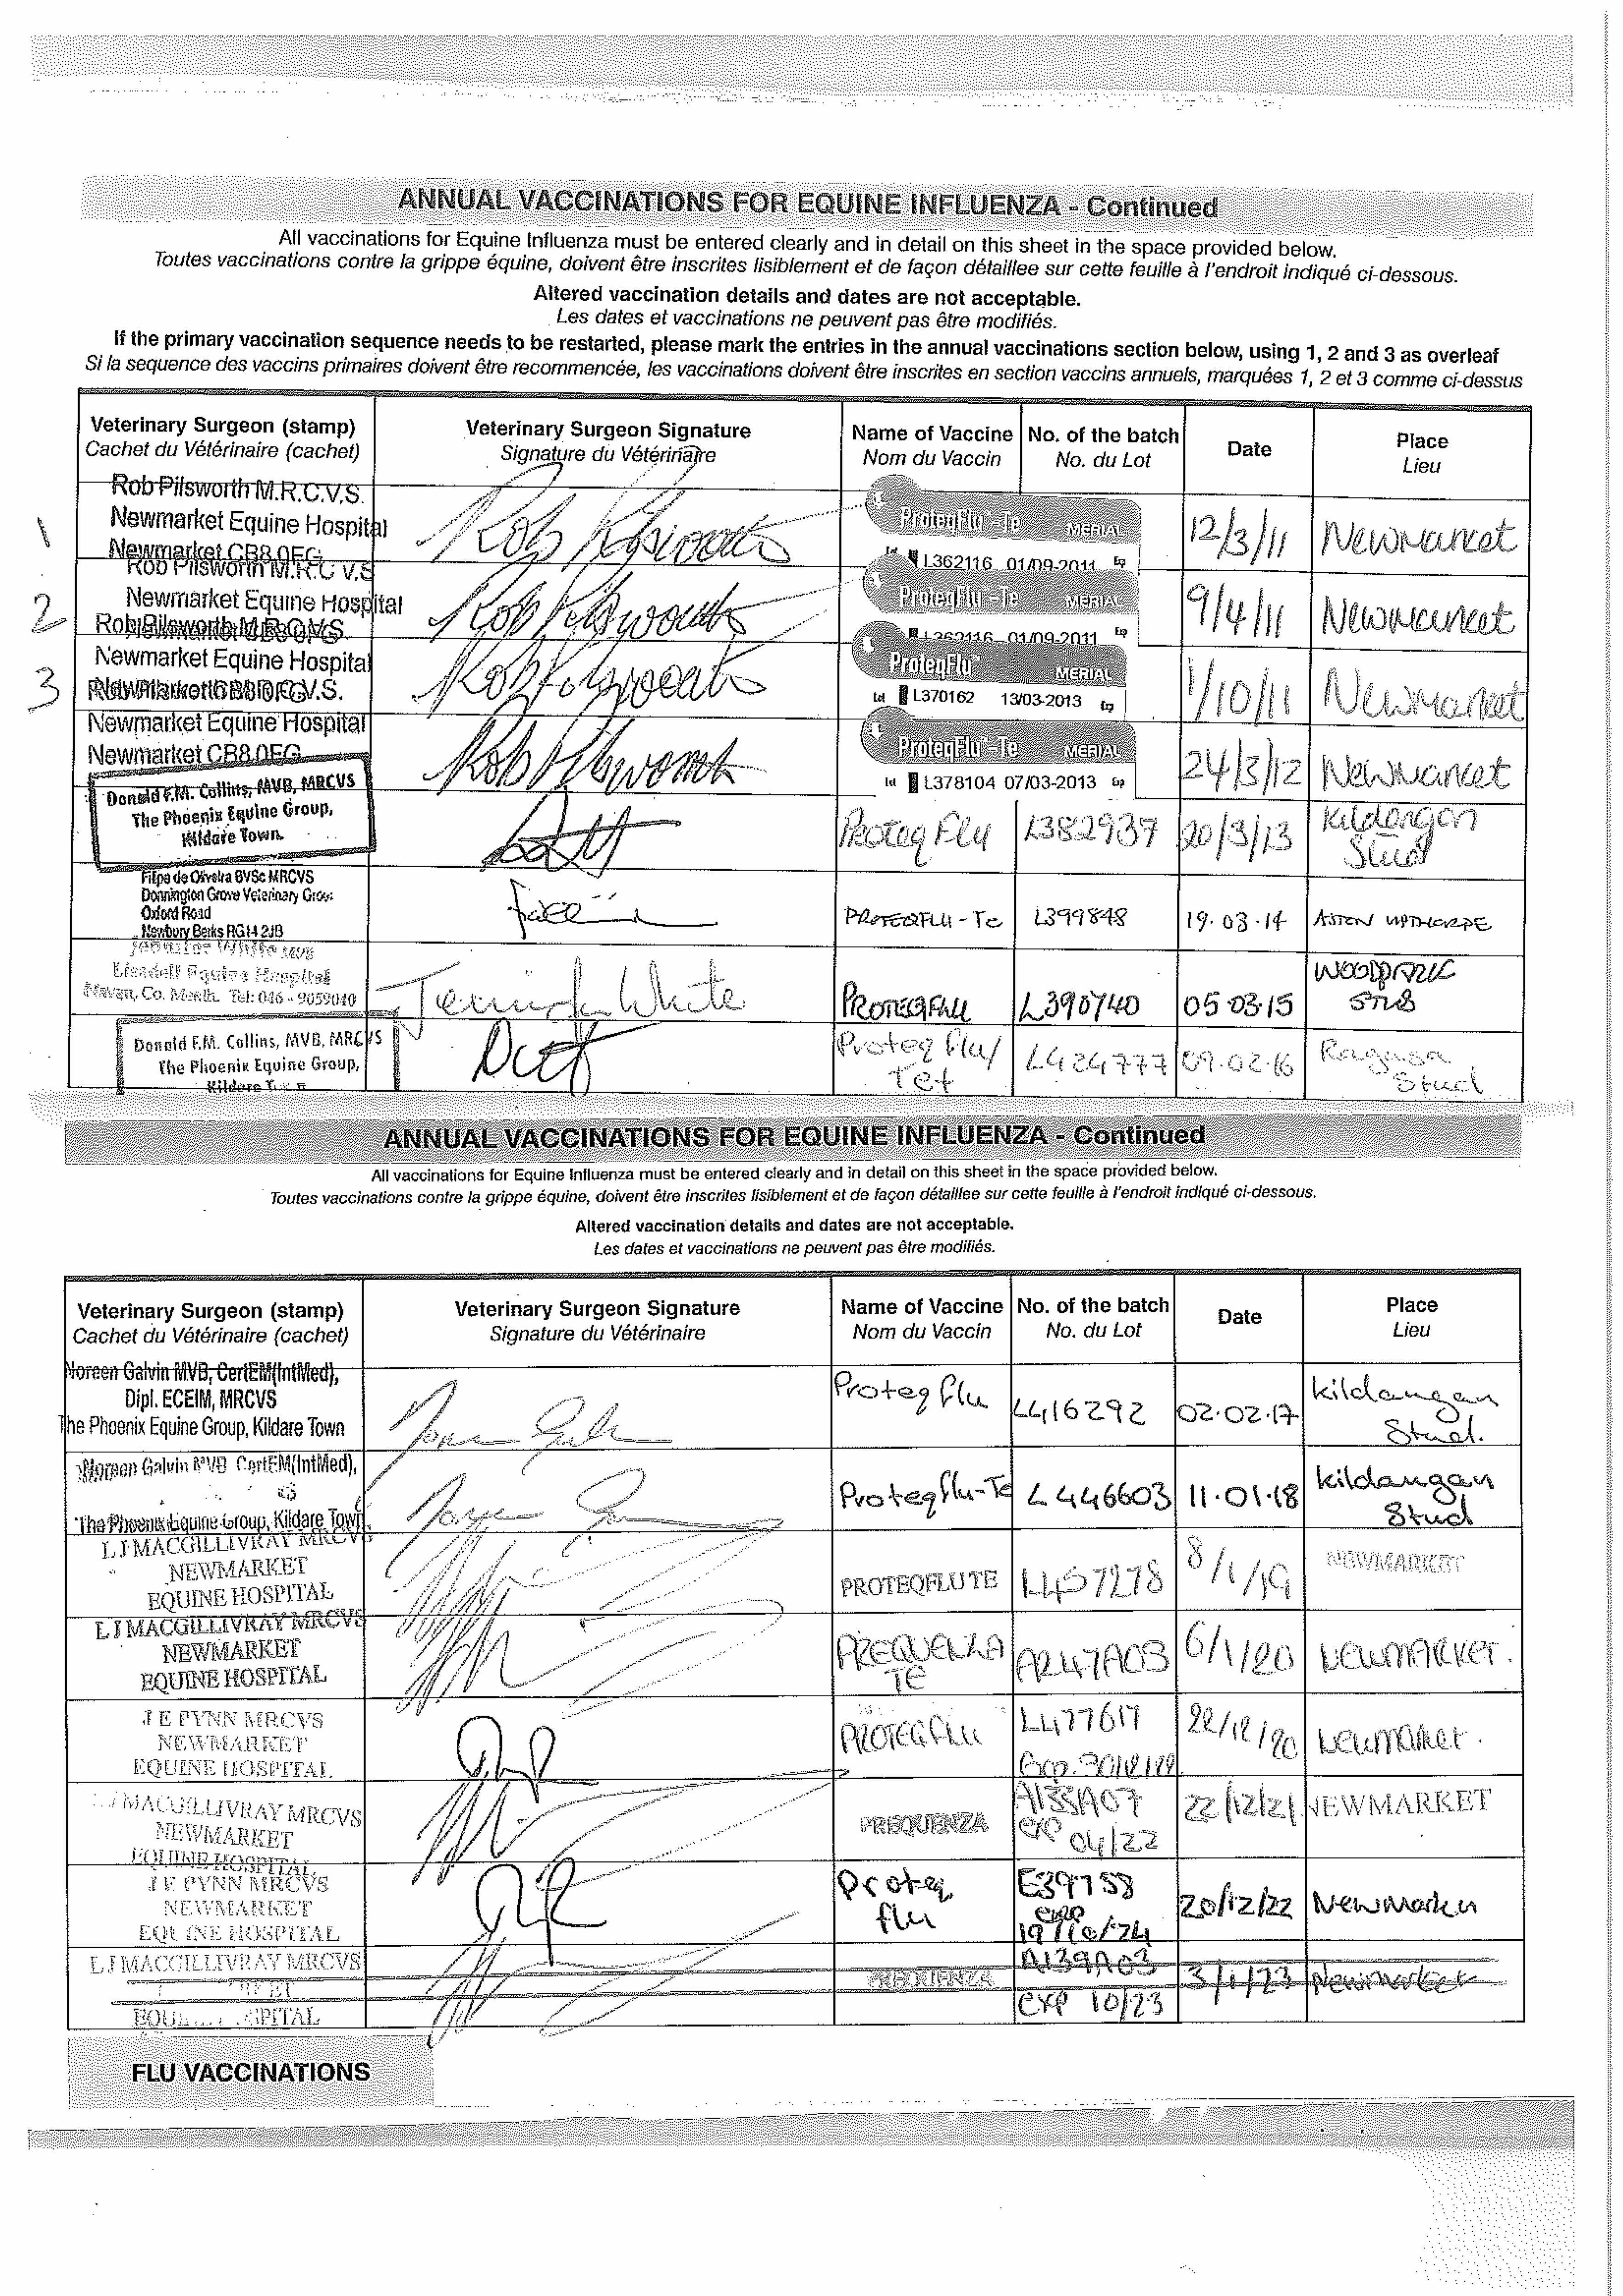 ANNUAL VACCINATIONS FOR EQUINE INFLUENZA - Continued
All vaccinations for Equine Influenza must be entered clearly and in detail on this sheet in the space provided below.
Toutes vaccinations contre la grippe équine, doivent être inscrites lisiblement et de façon détaillee sur cette feuille à l'endroit indiqué ci-dessous.
Altered vaccination details and dates are not acceptable.
Les dates et vaccinations ne peuvent pas être modifiés.
If the primary vaccination sequence needs to be restarted, please mark the entries in the annual vaccinations section below, using 1, 2 and 3 as overleaf
Si la sequence des vaccins primaires doivent être recommencée, les vaccinations doivent être inscrites en section vaccins annuels, marquées 1, 2 et 3 comme ci-dessus
Veterinary Surgeon (stamp) Veterinary Surgeon Signature Name of Vaccine No. of the batch Date Place
Cachet du Vétérinaire (cachet) Signature du Vétérinaire Nom du Vaccin No. du Lot Lieu
Rob Pilsworth M.R.C.V.S.
1 Newmarket Equine Hospital Rob Pilsworth ProteqFlu-Te MERIAL 12/3/11 Newmarket
Newmarket CB8 0FG Lot L362116 01/09-2011 Exp
Rob Pilsworth M.R.C.V.S
2 Newmarket Equine Hospital Rob Pilsworth ProteqFlu-Te MERIAL 9/4/11 Newmarket
L362116 01/09-2011 Exp
3 Newmarket Equine Hospital Rob Pilsworth ProteqFlu MERIAL 1/10/11 Newmarket
Lot L370162 13/03-2013 Exp
Newmarket Equine Hospital Rob Pilsworth ProteqFlu-Te MERIAL 24/3/12 Newmarket
Newmarket CB8 0FG Lot L378104 07/03-2013 Exp
Donald F.M. Collins, MVB, MRCVS
The Phoenix Equine Group, Proteq Flu L382937 20/3/13 Kildangan
Kildare Town. Stud
Filipa de Oliveira BVSc MRCVS
Donnington Grove Veterinary Group
Oxford Road PROTEQFLU-Te L399848 19.03.14 ASTON UPTHORPE
Newbury Berks RG14 2JB
Lisadell Equine Hospital WOODPARK
Navan, Co. Meath. Tel: 046 - 9059040 White PROTEQFLU L390740 05.03.15 STUD
Donald F.M. Collins, MVB, MRCVS Proteq flu/ L424777 09.02.16 Ragusa
The Phoenix Equine Group, Tet Stud
Kildare Town
ANNUAL VACCINATIONS FOR EQUINE INFLUENZA - Continued
All vaccinations for Equine Influenza must be entered clearly and in detail on this sheet in the space provided below.
Toutes vaccinations contre la grippe équine, doivent être inscrites lisiblement et de façon détaillee sur cette feuille à l'endroit indiqué ci-dessous.
Altered vaccination details and dates are not acceptable.
Les dates et vaccinations ne peuvent pas être modifiés.
Veterinary Surgeon (stamp) Veterinary Surgeon Signature Name of Vaccine No. of the batch Date Place
Cachet du Vétérinaire (cachet) Signature du Vétérinaire Nom du Vaccin No. du Lot Lieu
Noreen Galvin MVB, CertEM(IntMed),
Dipl. ECEIM, MRCVS Proteqflu L416292 02.02.17 Kildangan
The Phoenix Equine Group, Kildare Town Stud.
Noreen Galvin MVB CertEM(IntMed),
Proteqflu-Te L446603 11.01.18 Kildangan
The Phoenix Equine Group, Kildare Town. Stud
L J MACGILLIVRAY MRCVS
NEWMARKET PROTEQFLUTE L457278 8/1/19 NEWMARKET
EQUINE HOSPITAL
L J MACGILLIVRAY MRCVS
NEWMARKET PREQUENZA A247A03 6/1/20 NEWMARKET.
EQUINE HOSPITAL TE
J E PYNN MRCVS L477617
NEWMARKET PROTEQFLU 22/12/20 Newmarket.
EQUINE HOSPITAL
L J MACGILLIVRAY MRCVS A188A07 22/12/21 NEWMARKET
NEWMARKET PREQUENZA exp
EQUINE HOSPITAL 04/22
J E PYNN MRCVS Proteq E39758
NEWMARKET flu exp 20/12/22 Newmarket
EQUINE HOSPITAL 19/10/24
L J MACGILLIVRAY MRCVS A139A03
PREQUENZA 3/1/23 Newmarket
exp 10/23
FLU VACCINATIONS